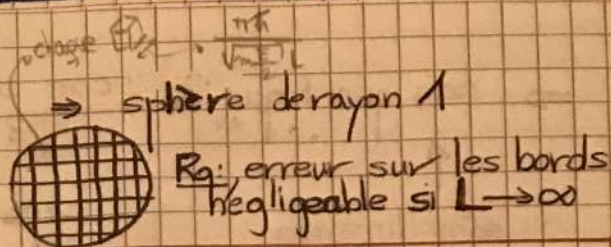 πℏ
⇒ sphère de rayon 1
Rq: erreur sur les bords
négligeable si L→∞